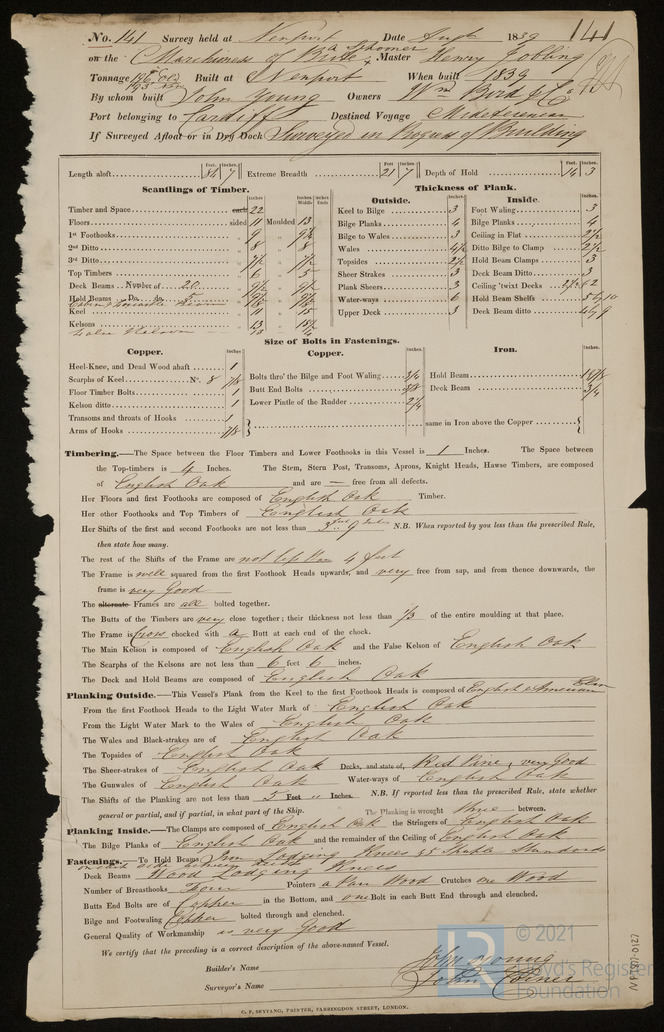 No. 141 Survey held at Newport Date Augt 1839 141
on the a Schooner Marchioness of Bute Master Henry Jobling
Tonnage Built at Newport When built 1839
By whom built John Young Owners Wm Bird & Co
Port belonging to Cardiff Destined Voyage Mediterranean
If Surveyed Afloat or in Dry Dock Surveyed in Progress of Building
Feet. Inches. Feet Inches. Feet. Inches.
Length aloft 7 Extreme Breadth 21 7 Depth of Hold 14 3
Scantlings of Timber. Thickness of Plank.
Outside. Inside.
Timber and Space each 22 Keel to Bilge 3 Foot Waling 3
Floors sided 11 Moulded 13 Bilge Planks 4 Bilge Planks 4
1st Foothooks 9 Bilge to Wales 3 Ceiling in Flat 2½
2nd Ditto 8 8 Wales 4½ Ditto Bilge to Clamp 2½
3rd Ditto 7½ 7½ Topsides 2½ Hold Beam Clamps 3
Top Timbers 6 5 Sheer Strakes 3 Deck Beam Ditto 3
Deck Beams Number of 20 Plank Sheers 3 Ceiling 'twixt Decks
Hold Beams Do. do. 5 Water-ways 6 Hold Beam Shelfs
Keel 11 15 Upper Deck 3 Deck Beam ditto
Kelsons 13
Size of Bolts in Fastenings.
Copper. Copper. Iron.
Heel-Knee, and Dead Wood abaft 1
Scarphs of Keel No. 8 7/8 Bolts thro' the Bilge and Foot Waling 3/4 Hold Beam
Floor Timber Bolts 1 Butt End Bolts Deck Beam 3/4
Kelson ditto 1 Lower Pintle of the Rudder 2¼
Transoms and throats of Hooks 1
Arms of Hooks 7/8 same in Iron above the Copper
Timbering.—The Space between the Floor Timbers and Lower Foothooks in this Vessel is 1 Inches. The Space between
the Top-timbers is 4 Inches. The Stem, Stern Post, Transoms, Aprons, Knight Heads, Hawse Timbers, are composed
of English Oak and are — free from all defects.
Her Floors and first Foothooks are composed of English Oak Timber.
Her other Foothooks and Top Timbers of English Oak
Her Shifts of the first and second Foothooks are not less than 3 feet 9 N.B. When reported by you less than the prescribed Rule,
then state how many.
The rest of the Shifts of the Frame are not less than 4 feet
The Frame is well squared from the first Foothook Heads upwards; and very free from sap, and from thence downwards, the
frame is very good
The alternate Frames are all bolted together.
The Butts of the Timbers are very close together; their thickness not less than 1/3 of the entire moulding at that place.
The Frame is cross chocked with a Butt at each end of the chock.
The Main Kelson is composed of English Oak and the False Kelson of English Oak
The Scarphs of the Kelsons are not less than 6 feet 6 inches.
The Deck and Hold Beams are composed of English Oak
Planking Outside.—This Vessel's Plank from the Keel to the first Foothook Heads is composed of English & American Elm
From the first Foothook Heads to the Light Water Mark of English Oak
From the Light Water Mark to the Wales of English Oak
The Wales and Black-strakes are of English Oak
The Topsides of English Oak
The Sheer-strakes of English Oak Decks, and state of, Red Pine, very Good
The Gunwales of English Oak Water-ways of English Oak
The Shifts of the Planking are not less than 5 Feet „ Inches. N.B. If reported less than the prescribed Rule, state whether
general or partial, and if partial, in what part of the Ship. The Planking is wrought three between.
Planking Inside.—The Clamps are composed of English Oak the Stringers of English Oak
The Bilge Planks of English Oak and the remainder of the Ceiling of English Oak
Fastenings.—To Hold Beams Iron Lodging Knees Standards
on each side between decks
Deck Beams Wood Lodging Knees
Number of Breasthooks Four Pointers a Pair Wood Crutches one Wood
Butts End Bolts are of Copper in the Bottom, and one Bolt in each Butt End through and clenched.
Bilge and Footwaling Copper bolted through and clenched.
General Quality of Workmanship is very Good
We certify that the preceding is a correct description of the above-named Vessel.
Builder's Name John Young
Surveyor's Name John
C. F. SEYFANG, PRINTER, FARRINGDON STREET, LONDON.
© 2021
Lloyd's Register
Foundation